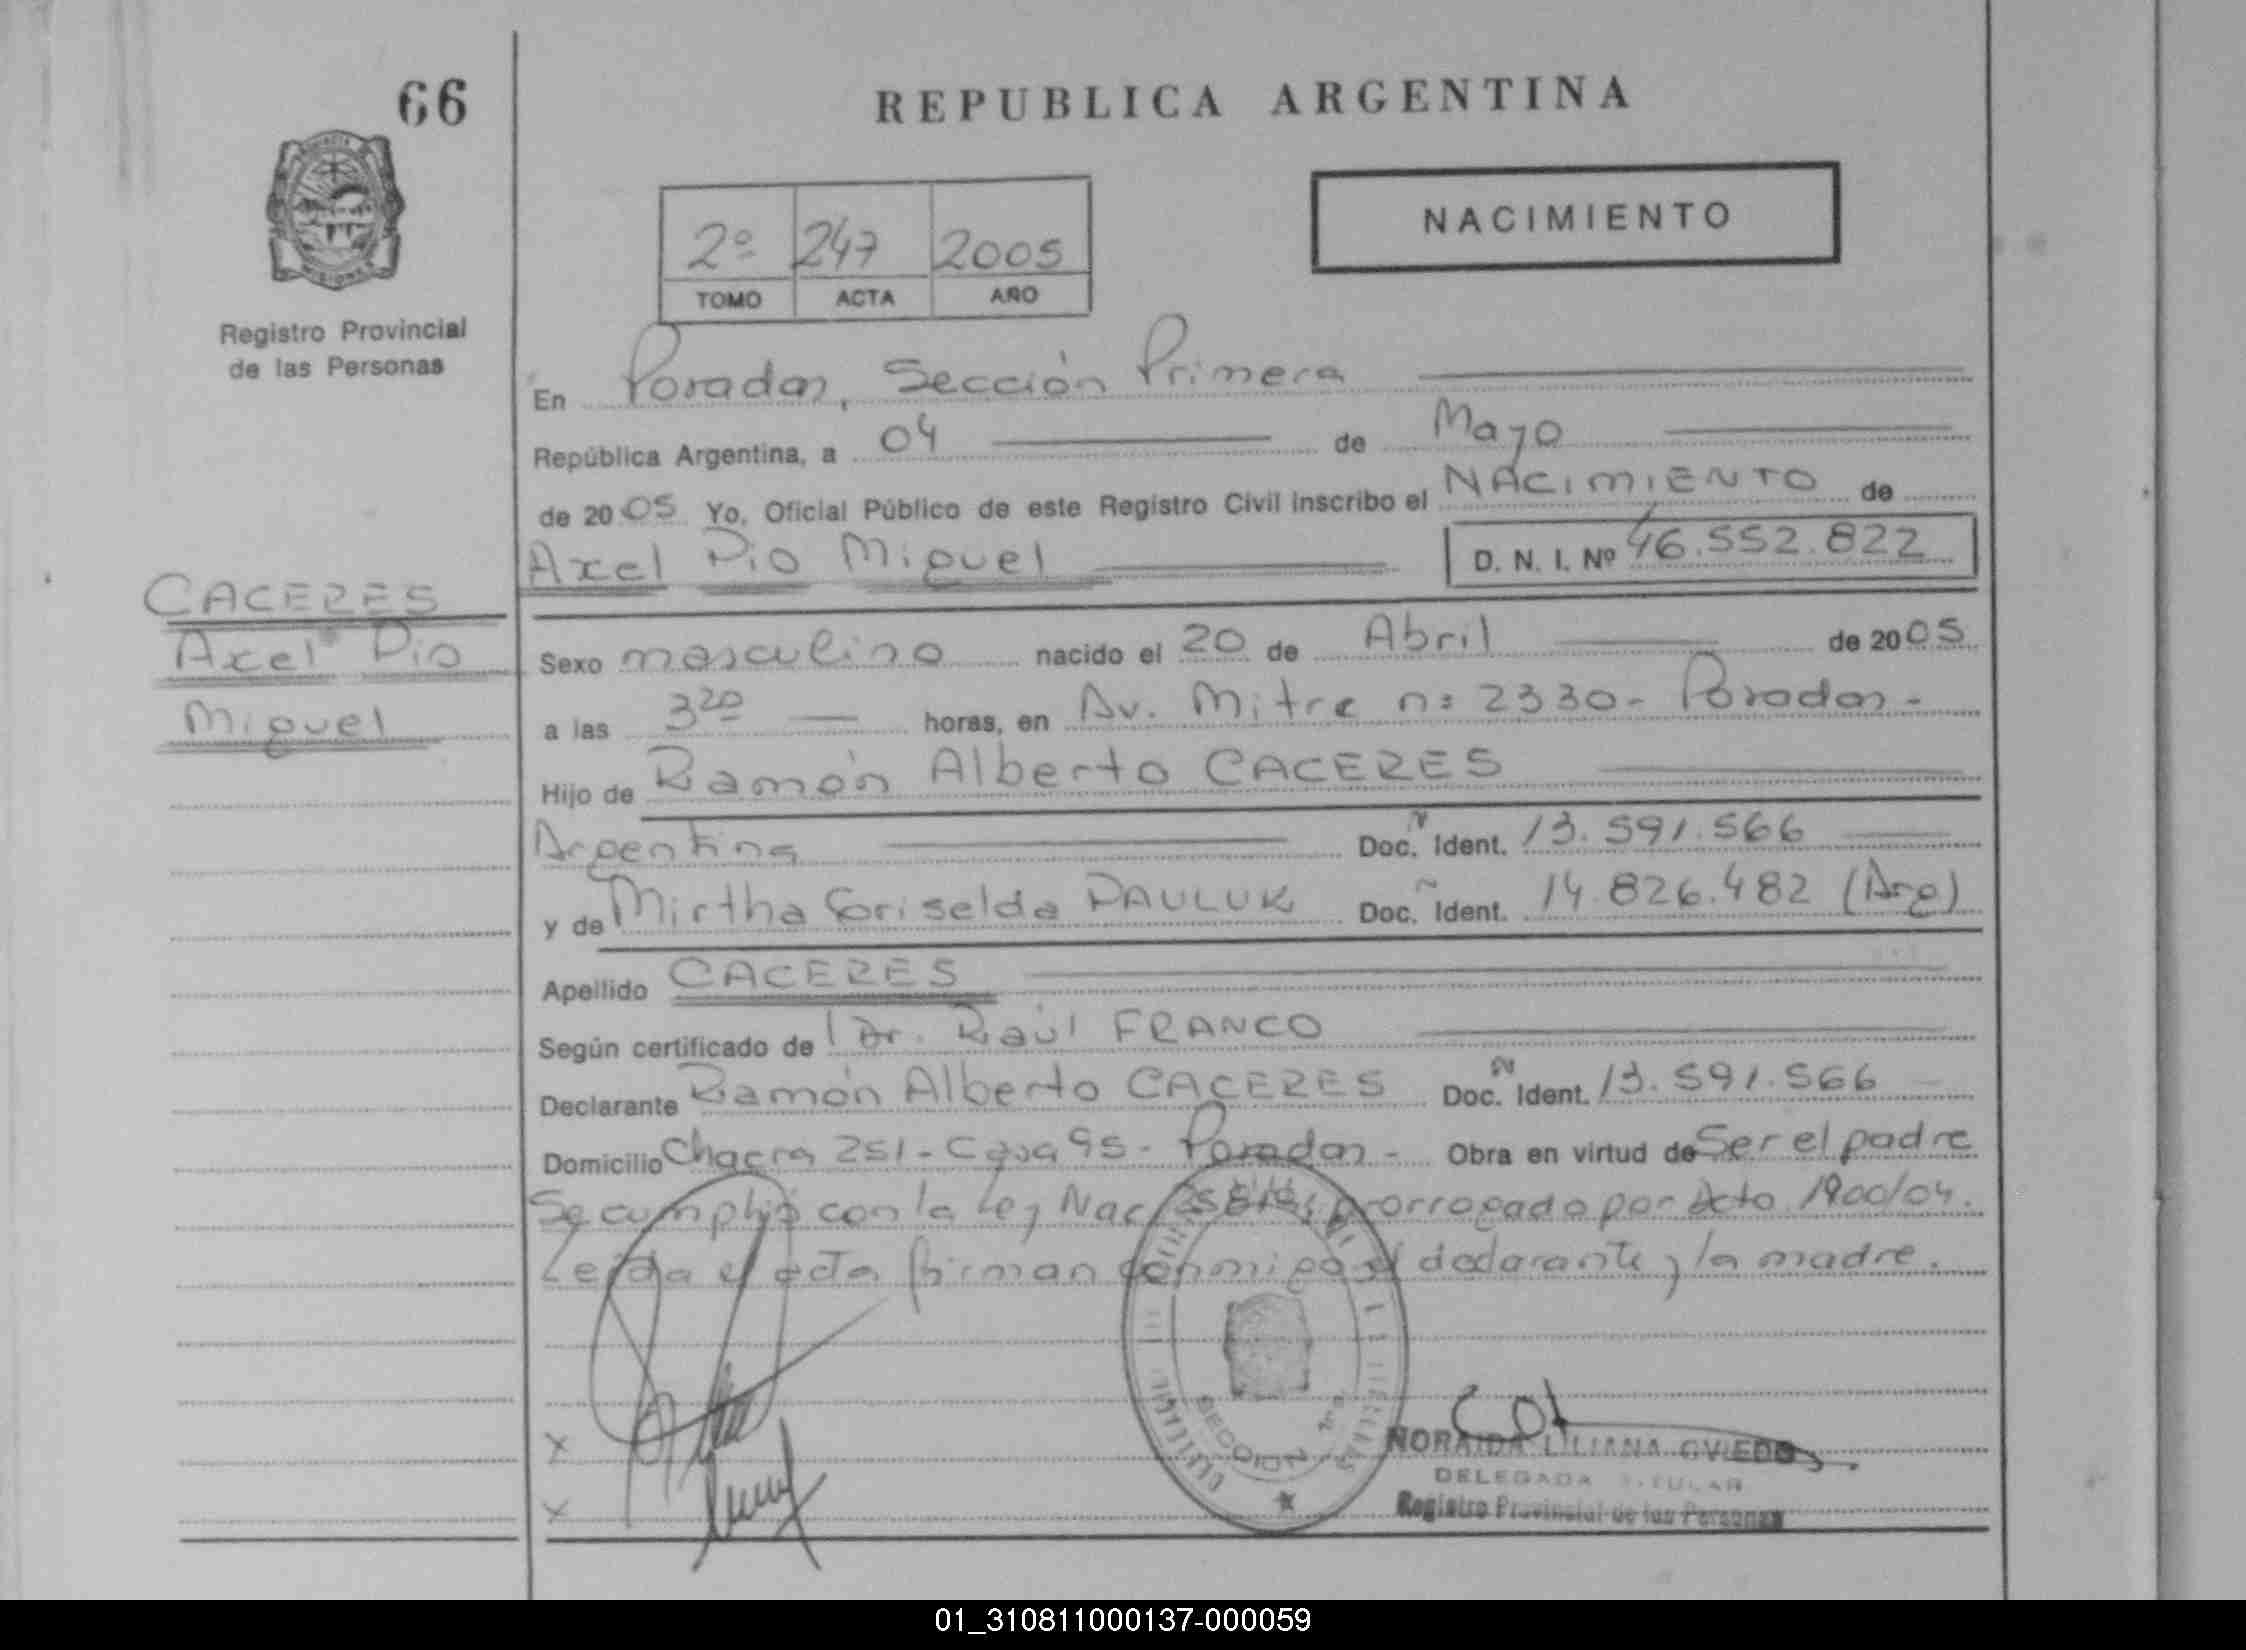 66
REPUBLICA ARGENTINA
NACIMIENTO
2º 247 2005
TOMO ACTA AÑO
Registro Provincial
de las Personas
En Posadas, Sección Primera
República Argentina, a 04 de Mayo
de 2005 Yo, Oficial Público de este Registro Civil inscribo el NACIMIENTO de
Axel Pio Miguel D. N. I. Nº 46.552.822
CACERES
Axel Pio
Miguel
Sexo masculino nacido el 20 de Abril de 2005
a las 3 20 horas, en Av. Mitre nº 2330- Posadas-
Hijo de Ramón Alberto CACERES
Argentina Doc. Ident. 13.591.566
y de Mirtha Griselda PAULUK Doc. Ident. 14.826.482 (Arg)
Apellido CACERES
Según certificado de Dr. Raúl FRANCO
Declarante Ramón Alberto CACERES Doc. Ident. 13.591.566
Domicilio Chacra 251-Casa 95- Posadas- Obra en virtud de Ser el padre
Se cumplió con la Ley Nac prorrogado por 1900/04.
Leida el acta firman conmigo el declarante y la madre.
X
X
SECCION 1ra
NORAIDA LILIANA OVIEDO
DELEGADA TITULAR
Registro Provincial de las Personas
01_310811000137-000059